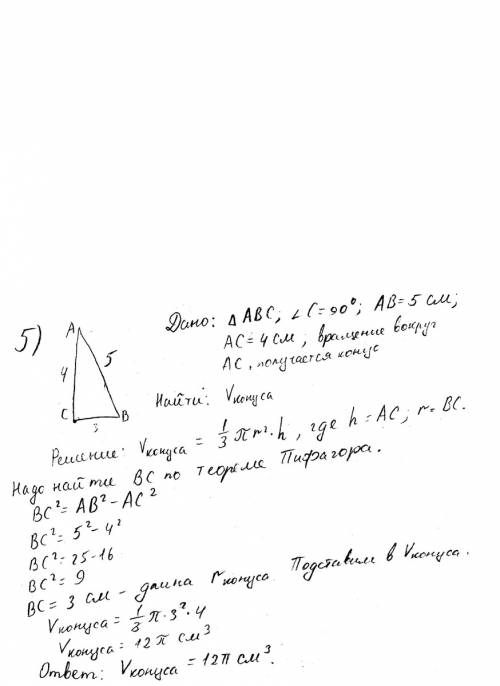 5)
A
4
5
C
3
B
Дано: △ ABC; ∠C=90°; AB=5 см;
AC=4 см; вращение вокруг
AC, получается конус
Найти: Vконуса
Решение: Vконуса = 1/3 πr²·h, где h=AC; r=BC.
Надо найти BC по теореме Пифагора.
BC²=AB²-AC²
BC²=5²-4²
BC²=25-16
BC²=9
BC=3 см - длина rконуса. Подставим в Vконуса.
Vконуса=1/3 π·3²·4
Vконуса=12π см³
Ответ: Vконуса=12π см³.